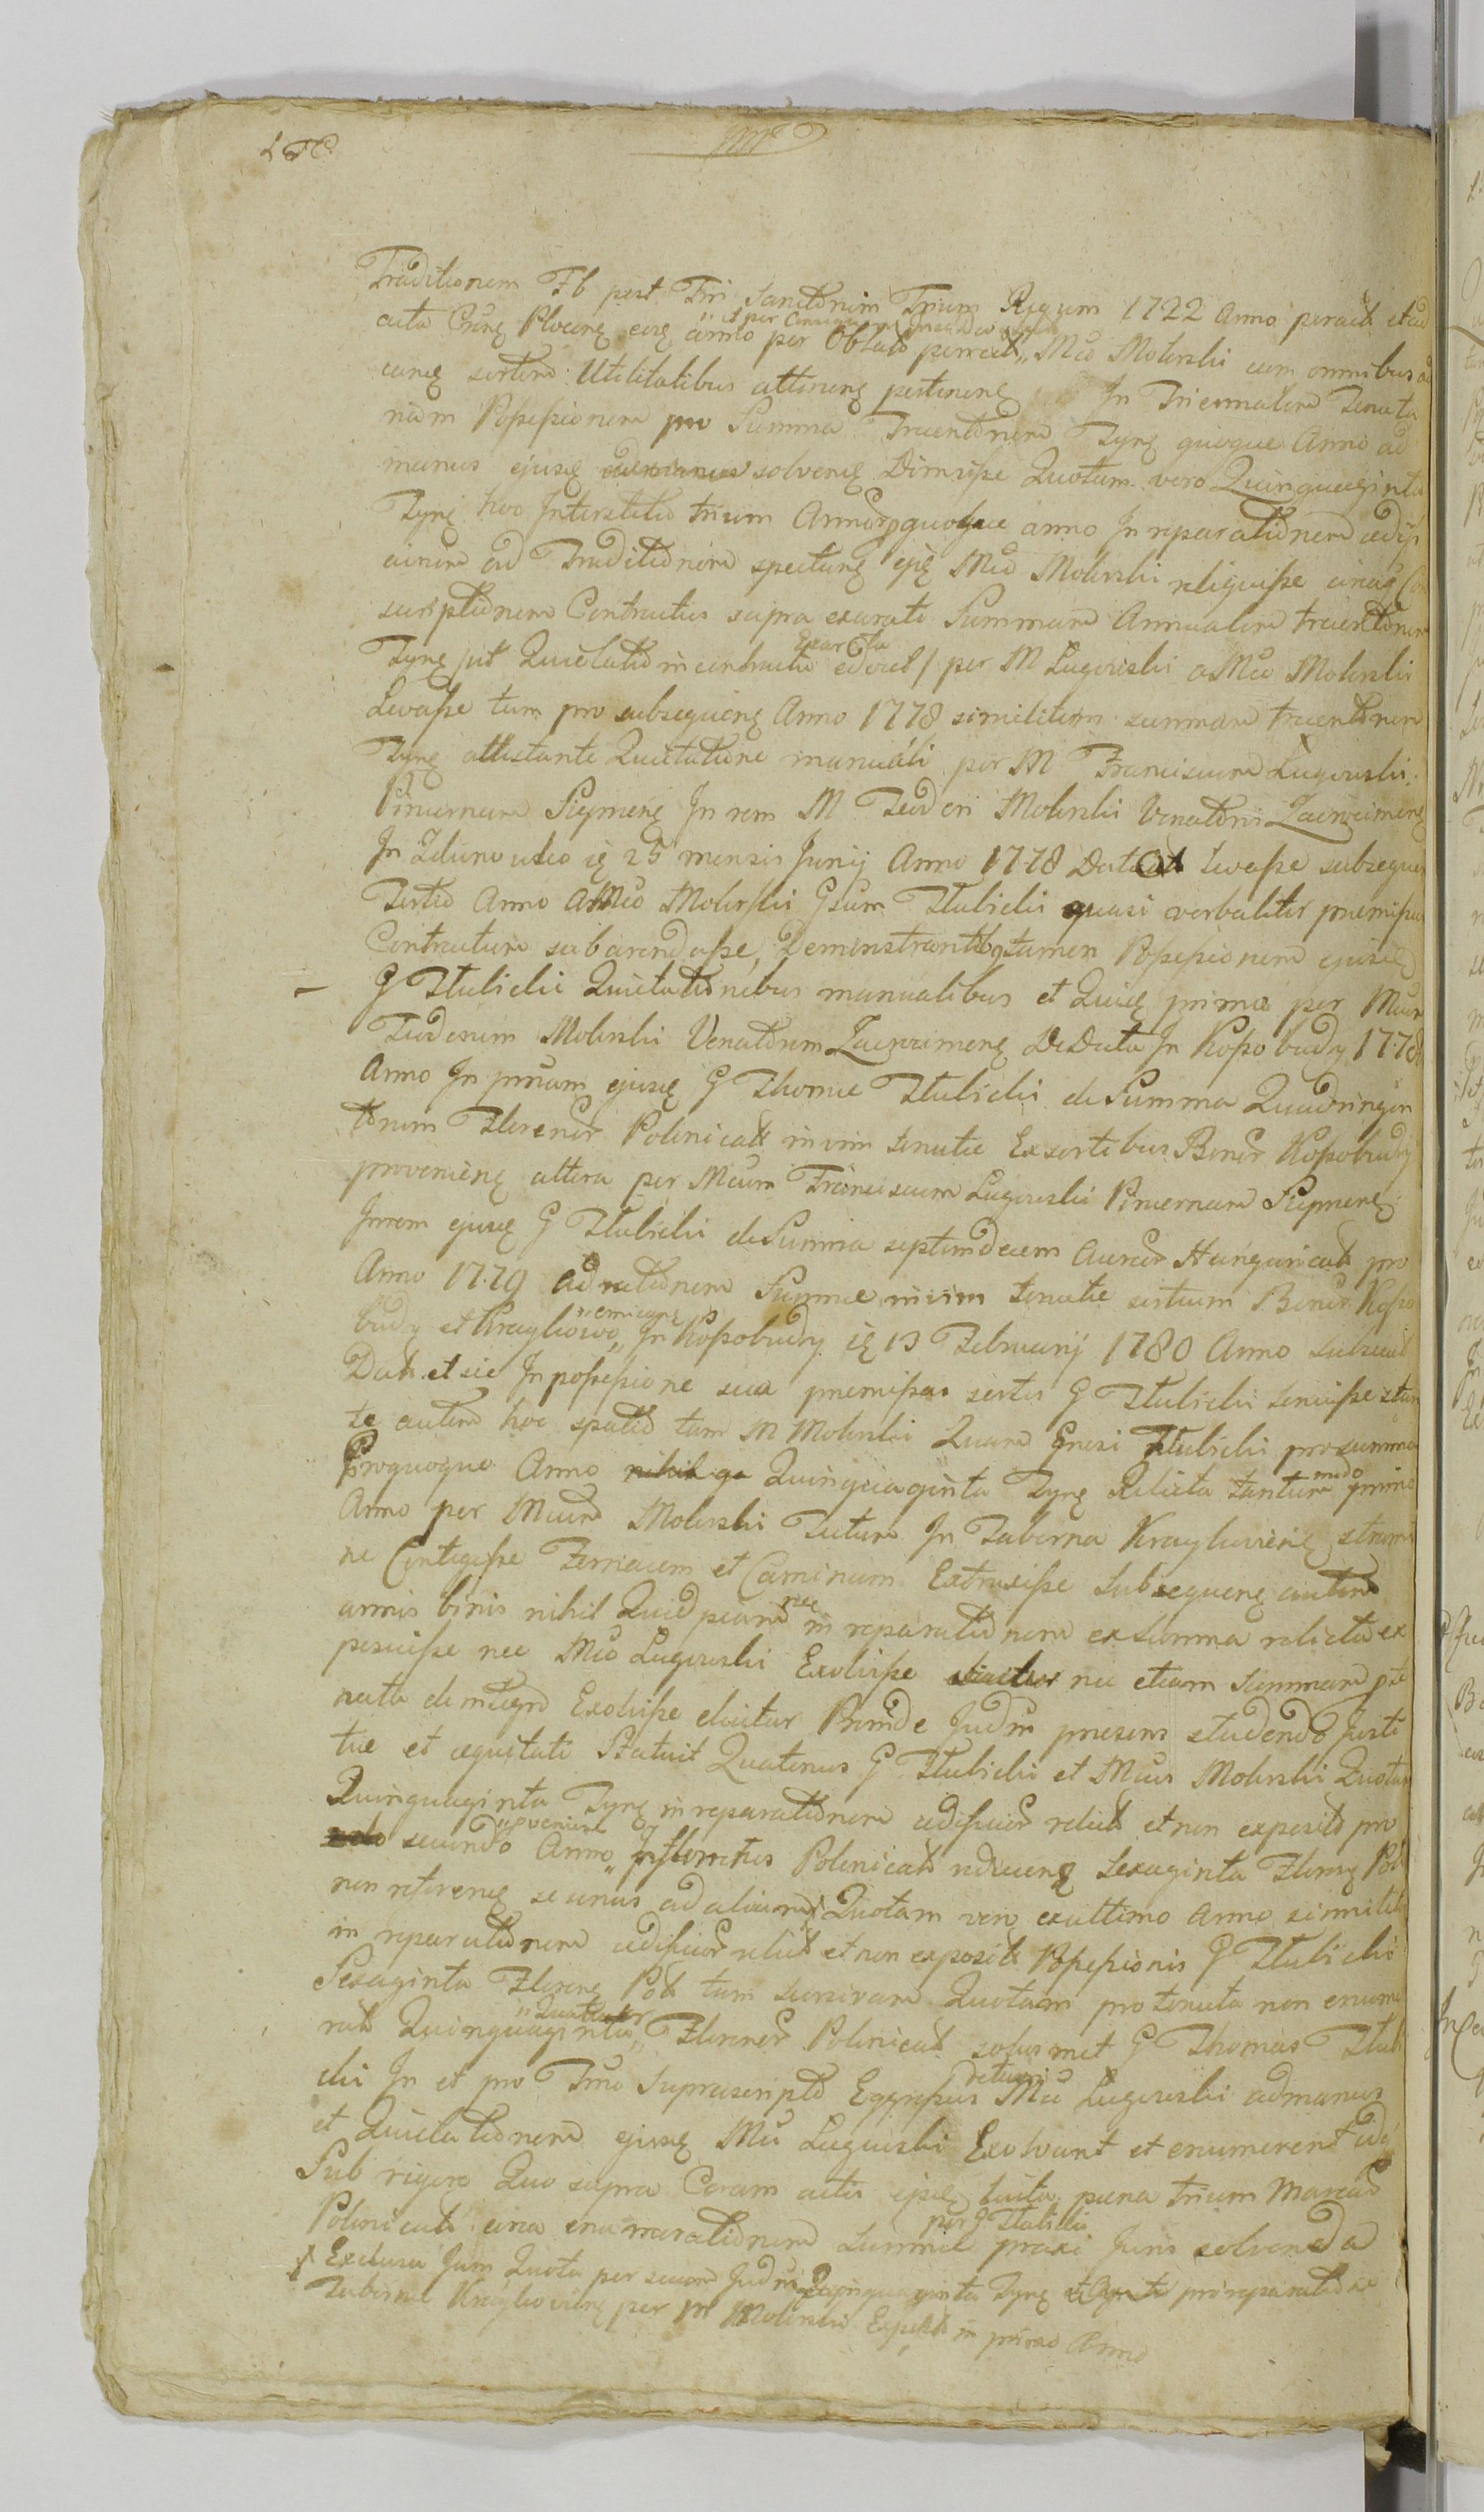 Traditionem Fb post Fm Sanctorum Trium Regum 1722 Anno peract et ad
acta Cring Plocenę eoę anno per Oblatō porrect" Mco Mohrski cum omnibus ad
eanę sortem Utilitatibus attinenę pertinenę In Triennalem Tenuta
riam Possessionem pro Summa Trecentorum Tynę quoque Anno ad
manus ejusę solvenę Dimisisse Quotam vero Quinquaginta
Tynę hoc Interstitio trium Annorę quoque anno In reparationem ædifi
ciorum ad Traditionem spectanę ejsę Mco Mohrski reliquisse circa Con
scriptionem Contractus supra exarati Summam Annualem trecentorum
Tynę / ut Quietatio in contractu Exarata edocet / per M Lugowski a Mco Mohrski
Levasse tum pro subsequenę Anno 1778 similitem summam trecentorum
Tynę attestante Quietatione manuali per M Franciscum Lugowski
Pincernam Stęmenę In rem M Teodori Mohrski Venatoris Zacrocimenę
In Zdunowko ię 25 mensis Junij Anno 1778 Datat levasse subsequen
Tertio Anno a Mco Mohrski Gsum Stubicki quasi verbaliter premissum
Contractum subarendasse, Deminstrantibę tamen Possessionem ejusd
G Stubicki Quietationibus manualibus et Quieę prima per Mcum
Teodorum Mohrski Venatorem Zacrocimenę De Data In Kossobudy 1778
Anno In personam ejusę G Thomæ Stubicki de Summa Quadringen
torum Florenor Polonicalt in vim tenutæ Ex sortibus Bonor Kossobudy
provenienę altera per Mcum Franciscum Lugowski Pincernam Stęmenę
In rem ejusę G Stubicki de Summa septemdecem Aureor Hungaricalt pro
Anno 1779 ad rationem Summæ in vim tenutæ sortium Bonor Kosso
budy et Kraykowo" In Kossobudy ię 13 Februarij 1780 Anno Subscrib
Dat et sic In possessione sua premissas sortis G Stubicki tenuisse stan
te autem hoc spatio tam M Mohrski Quam Gnosi Stubicki pro summa
proquoque Anno Quinquaginta Tynę Relicta tantum modo primo
Anno per Mcum Mohrski Tectum In Taberna Kraykovienę strami
ne Contegisse Fornacem et Caminum Extruxisse Subsequenę autem
annis binis nihil Quidpiam nec in reparationem ex Summa relicta ex
posuisse nec Mco Lugowski Exolvisse nec etiam Summam pte
nuta de integro Exolvisse dicitur Proinde Judm præsens studendo Justi
tiæ et æquitati Statuit Quatenus G Stubicki et Mcus Mohrski Quotam
Quinquaginta Tynę in reparationem ædificior relict et non exposit pro
secundo Anno" In florenos Polonicalt reducenę Sexaginta Florenę Pol
non referenę se unus ad alium Quotam venę ex ultimo Anno similit
in reparationem ædificior relict et non exposit Possessionis G Stubicki
Sexaginta Florenę Polt tum Quotam pro tenuta non enume
rat Quinquaginta "Quatuor" Florenor Polonicalt solus met G Thomas Stubi
cki In et pro Tmo Suprascripto Eggressus Mci Lugowski ad manus
et Quietationem ejusę Mci Lugowski Exolvant et enumerent id
Sub rigore Quo supra Coram actis ejsę luita pæna trium Marcar
Polonicalt circa enumerationem Summæ per G Stubicki praxi Juris solvenda
Exclusa Jam Quota per Judm Quinquaginta Tynę pro reparatione
Tabernæ Kraykovienę per M Mohrski Exposit in primo Anno